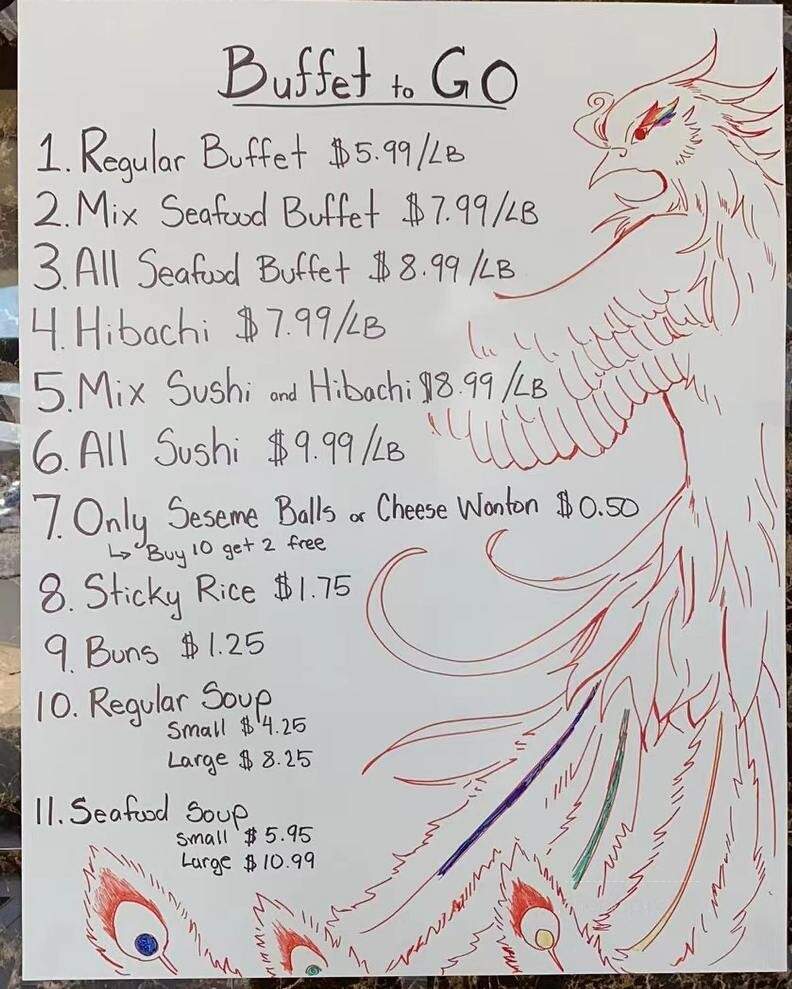 Buffet to GO
1. Regular Buffet $5.99/LB
2. Mix Seafood Buffet $7.99/LB
3. All Seafood Buffet $8.99/LB
4. Hibachi $7.99/LB
5. Mix Sushi and Hibachi $8.99/LB
6. All Sushi $9.99/LB
7. Only Seseme Balls or Cheese Wonton $0.50
↳ Buy 10 get 2 free
8. Sticky Rice $1.75
9. Buns $1.25
10. Regular Soup
Small $4.25
Large $8.25
11. Seafood Soup
Small $5.95
Large $10.99